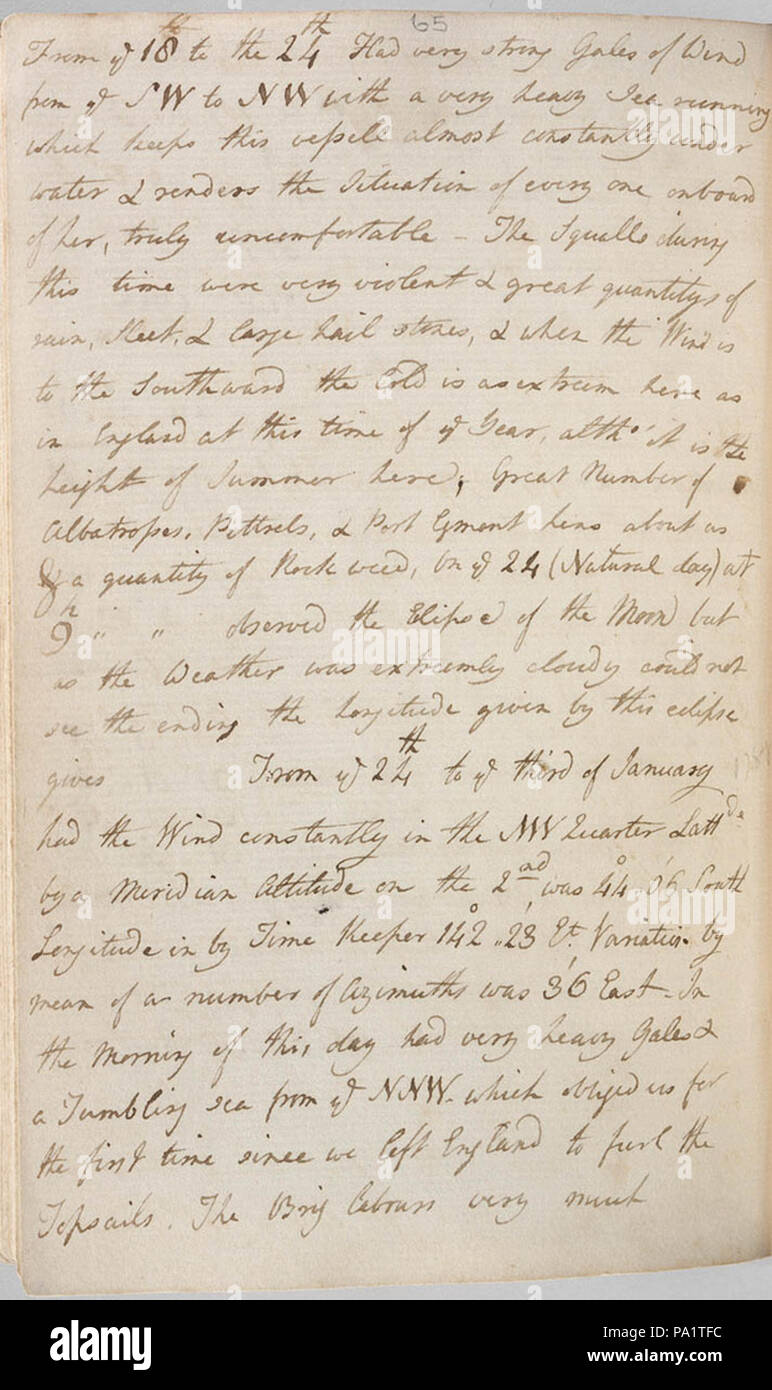 65
From ye 18th to the 24th Had very strong Gales of Wind
from ye SW to NW with a very heavy Sea running
which keeps this vessell almost constantly under
water & renders the Situation of every one onboard
of her, truly uncomfortable - The Squalls during
this time were very violent & great quantitys of
rain, Sleet, & large hail stones, & when the Wind is
to the Southward the Cold is as extreem here as
in England at this time of ye Year, altho' it is the
height of Summer here, Great Number of
Albatrosses, Pettrels, & Port Egmont hens about us
& a quantity of Rock weed, On ye 24 (Natural day) at
9h " " observed the Elipse of the Moon but
as the Weather was extreemly cloudy could not
see the ending the longitude given by this eclipse
gives From ye 24th to ye third of January
had the Wind constantly in the NW Quarter Lattde
by a Meridian Altitude on the 2nd was 44° 06' South
Longitude in by Time Keeper 142°.. 23' Et. Variation by
mean of a number of Azimuths was 3°6' East - In
the Morning of this day had very heavy Gales &
a Tumbling sea from ye NNW. which obliged us for
the first time since we left England to furl the
Topsails. The Brig labours very much
alamy
alamy
Image ID: PA1TFC
www.alamy.com